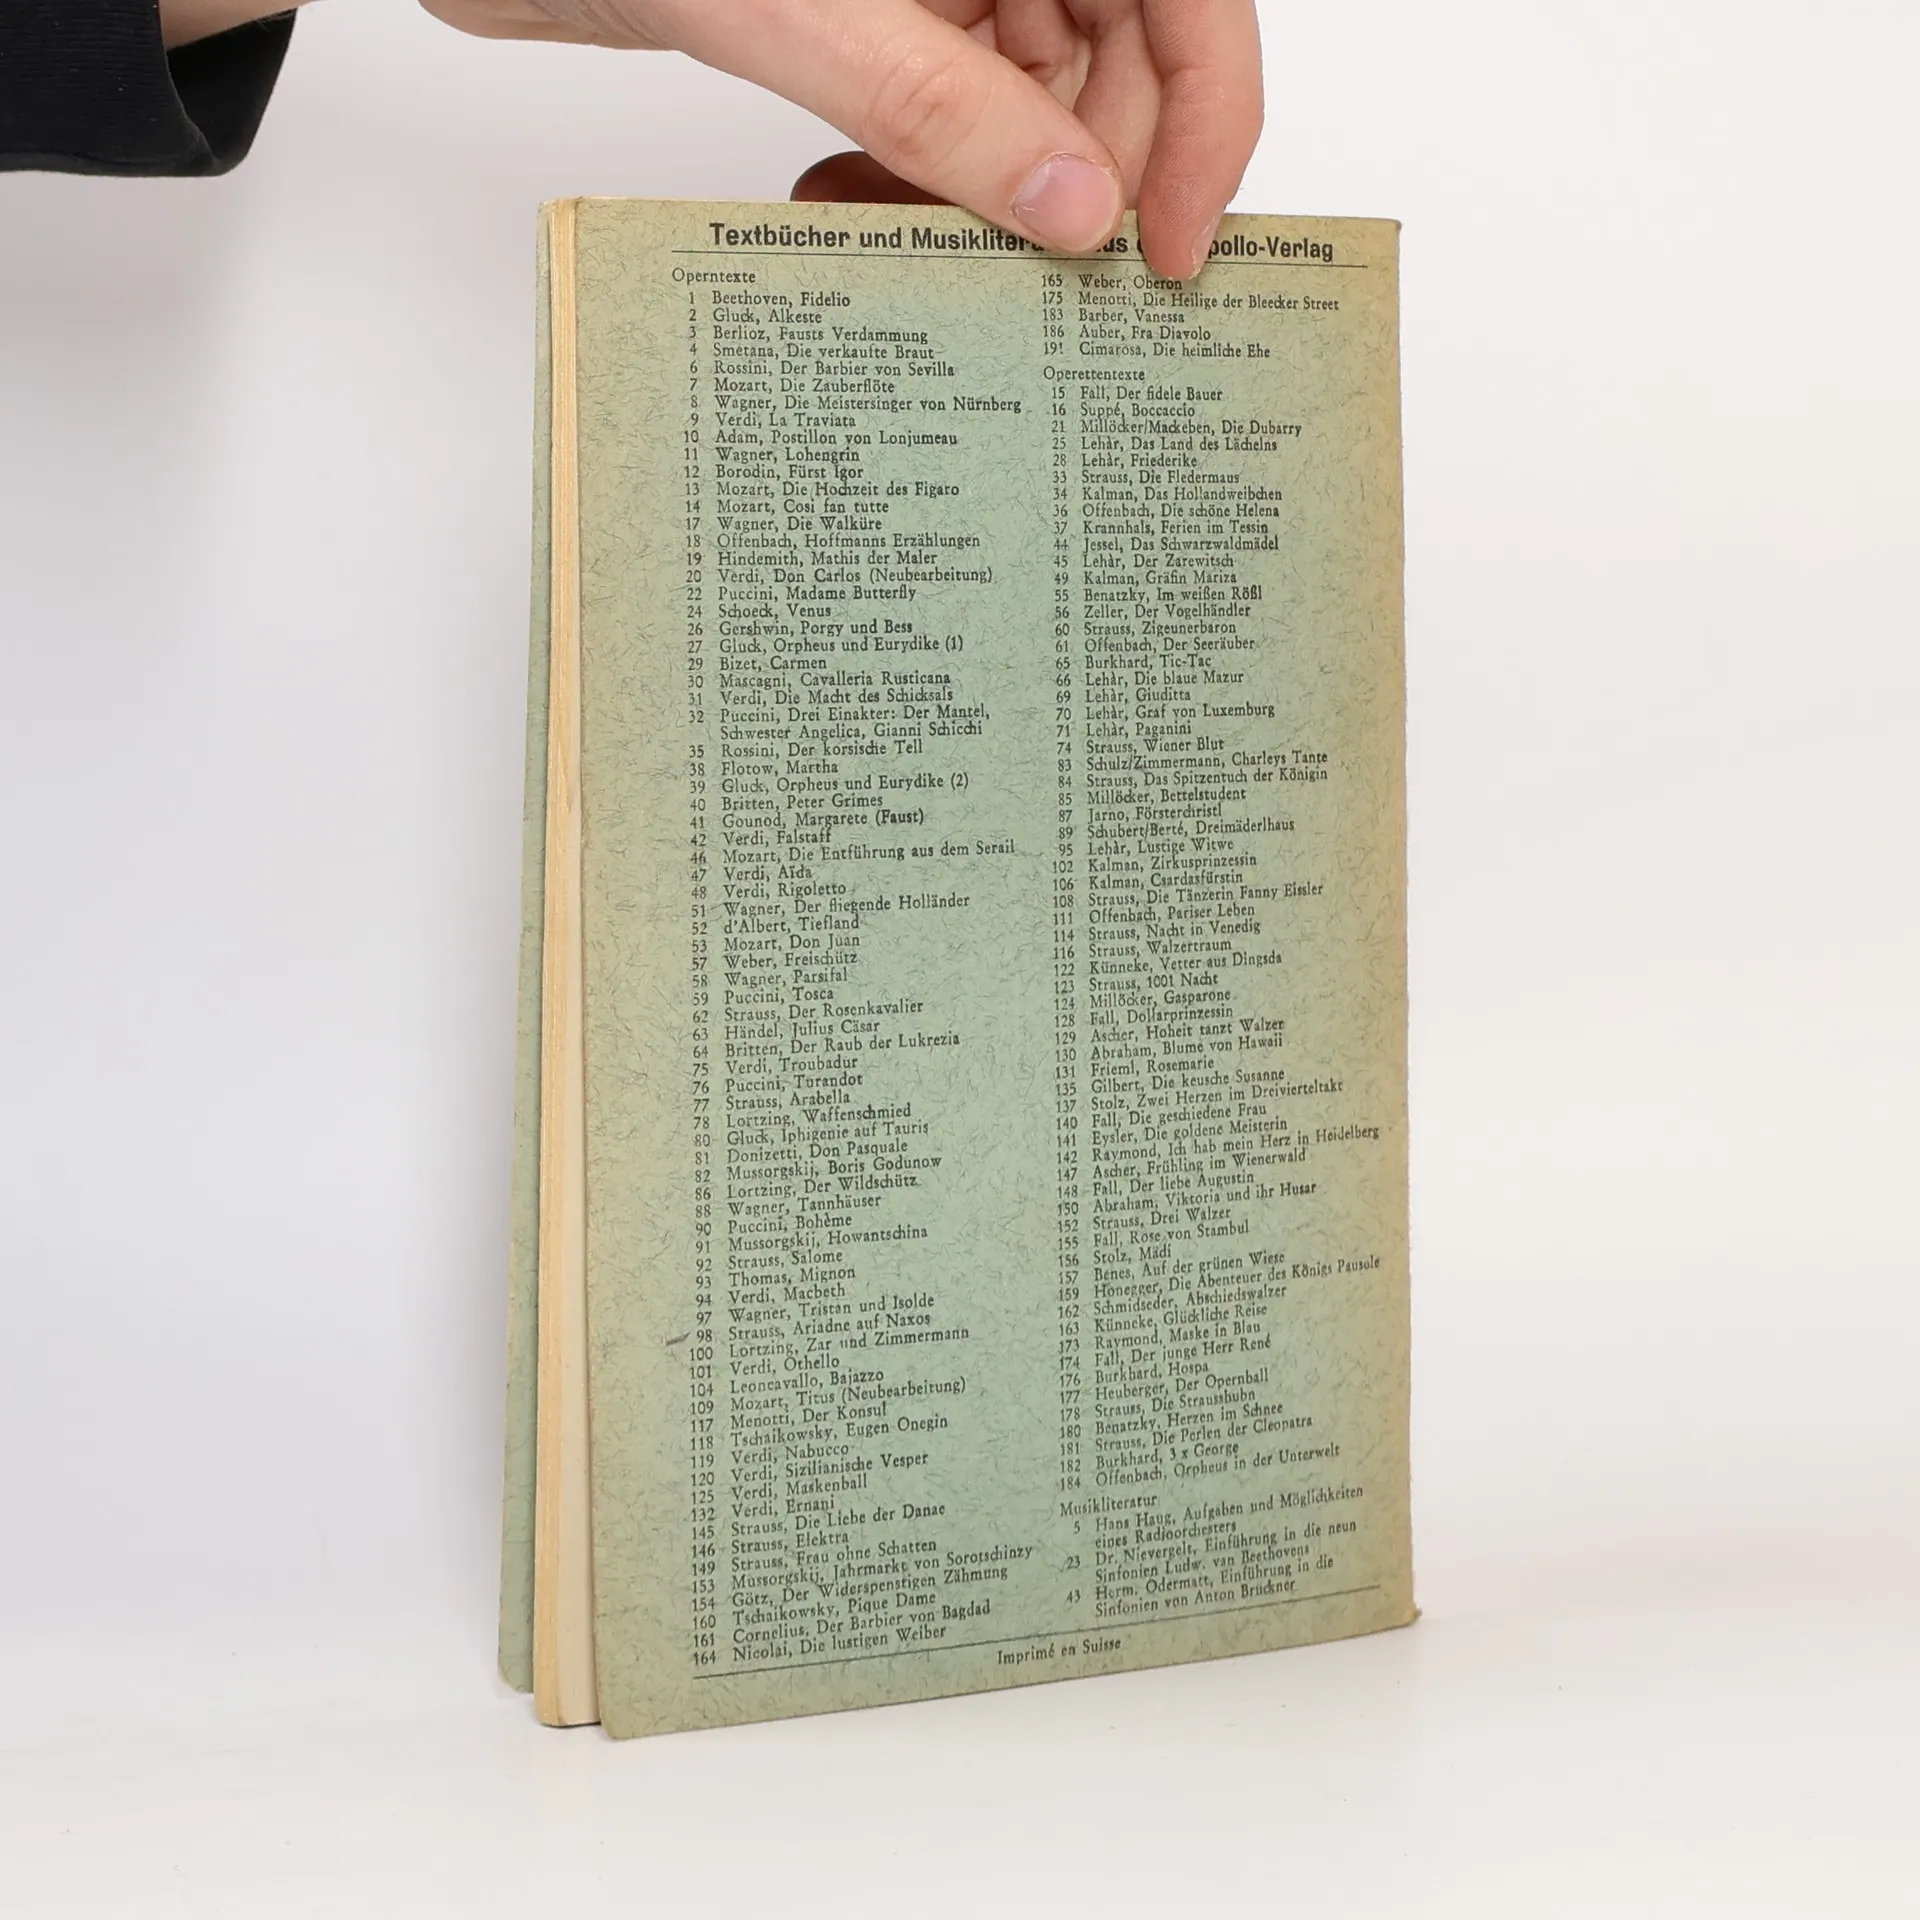 Textbücher und Musiklitera us pollo-Verlag
Operntexte
1 Beethoven, Fidelio
2 Gluck, Alkeste
3 Berlioz, Fausts Verdammung
4 Smetana, Die verkaufte Braut
6 Rossini, Der Barbier von Sevilla
7 Mozart, Die Zauberflöte
8 Wagner, Die Meistersinger von Nürnberg
9 Verdi, La Traviata
10 Adam, Postillon von Lonjumeau
11 Wagner, Lohengrin
12 Borodin, Fürst Igor
13 Mozart, Die Hochzeit des Figaro
14 Mozart, Così fan tutte
17 Wagner, Die Walküre
18 Offenbach, Hoffmanns Erzählungen
19 Hindemith, Mathis der Maler
20 Verdi, Don Carlos (Neubearbeitung)
22 Puccini, Madame Butterfly
24 Schoeck, Venus
26 Gershwin, Porgy und Bess
27 Gluck, Orpheus und Eurydike (1)
29 Bizet, Carmen
30 Mascagni, Cavalleria Rusticana
31 Verdi, Die Macht des Schicksals
32 Puccini, Drei Einakter: Der Mantel,
Schwester Angelica, Gianni Schicchi
35 Rossini, Der korsische Tell
38 Flotow, Martha
39 Gluck, Orpheus und Eurydike (2)
40 Britten, Peter Grimes
41 Gounod, Margarete (Faust)
42 Verdi, Falstaff
46 Mozart, Die Entführung aus dem Serail
47 Verdi, Aïda
48 Verdi, Rigoletto
51 Wagner, Der fliegende Holländer
52 d'Albert, Tiefland
53 Mozart, Don Juan
57 Weber, Freischütz
58 Wagner, Parsifal
59 Puccini, Tosca
62 Strauss, Der Rosenkavalier
63 Händel, Julius Cäsar
64 Britten, Der Raub der Lukrezia
75 Verdi, Troubadur
76 Puccini, Turandot
77 Strauss, Arabella
78 Lortzing, Waffenschmied
80 Gluck, Iphigenie auf Tauris
81 Donizetti, Don Pasquale
82 Mussorgskij, Boris Godunow
86 Lortzing, Der Wildschütz
88 Wagner, Tannhäuser
90 Puccini, Bohème
91 Mussorgskij, Howantschina
92 Strauss, Salome
93 Thomas, Mignon
94 Verdi, Macbeth
97 Wagner, Tristan und Isolde
98 Strauss, Ariadne auf Naxos
100 Lortzing, Zar und Zimmermann
101 Verdi, Othello
104 Leoncavallo, Bajazzo
109 Mozart, Titus (Neubearbeitung)
117 Menotti, Der Konsul
118 Tschaikowsky, Eugen Onegin
119 Verdi, Nabucco
120 Verdi, Sizilianische Vesper
125 Verdi, Maskenball
132 Verdi, Ernani
145 Strauss, Die Liebe der Danae
146 Strauss, Elektra
149 Strauss, Frau ohne Schatten
153 Mussorgskij, Jahrmarkt von Sorotschinzy
154 Götz, Der Widerspenstigen Zähmung
160 Tschaikowsky, Pique Dame
161 Cornelius, Der Barbier von Bagdad
164 Nicolai, Die lustigen Weiber
165 Weber, Oberon
175 Menotti, Die Heilige der Bleecker Street
183 Barber, Vanessa
186 Auber, Fra Diavolo
191 Cimarosa, Die heimliche Ehe
Operettentexte
15 Fall, Der fidele Bauer
16 Suppé, Boccaccio
21 Millöcker/Mackeben, Die Dubarry
25 Lehàr, Das Land des Lächelns
28 Lehàr, Friederike
33 Strauss, Die Fledermaus
34 Kalman, Das Hollandweibchen
36 Offenbach, Die schöne Helena
37 Krannhals, Ferien im Tessin
44 Jessel, Das Schwarzwaldmädel
45 Lehàr, Der Zarewitsch
49 Kalman, Gräfin Mariza
55 Benatzky, Im weißen Rößl
56 Zeller, Der Vogelhändler
60 Strauss, Zigeunerbaron
61 Offenbach, Der Seeräuber
65 Burkhard, Tic-Tac
66 Lehàr, Die blaue Mazur
69 Lehàr, Giuditta
70 Lehàr, Graf von Luxemburg
71 Lehàr, Paganini
74 Strauss, Wiener Blut
83 Schulz/Zimmermann, Charleys Tante
84 Strauss, Das Spitzentuch der Königin
85 Millöcker, Bettelstudent
87 Jarno, Försterchristl
89 Schubert/Berté, Dreimäderlhaus
95 Lehàr, Lustige Witwe
102 Kalman, Zirkusprinzessin
106 Kalman, Csardasfürstin
108 Strauss, Die Tänzerin Fanny Elssler
111 Offenbach, Pariser Leben
114 Strauss, Nacht in Venedig
116 Strauss, Walzertraum
122 Künneke, Vetter aus Dingsda
123 Strauss, 1001 Nacht
124 Millöcker, Gasparone
128 Fall, Dollarprinzessin
129 Ascher, Hoheit tanzt Walzer
130 Abraham, Blume von Hawaii
131 Frieml, Rosemarie
135 Gilbert, Die keusche Susanne
137 Stolz, Zwei Herzen im Dreivierteltakt
140 Fall, Die geschiedene Frau
141 Eysler, Die goldene Meisterin
142 Raymond, Ich hab mein Herz in Heidelberg
147 Ascher, Frühling im Wienerwald
148 Fall, Der liebe Augustin
150 Abraham, Viktoria und ihr Husar
152 Strauss, Drei Walzer
155 Fall, Rose von Stambul
156 Stolz, Mädi
157 Benes, Auf der grünen Wiese
159 Honegger, Die Abenteuer des Königs Pausole
162 Schmidseder, Abschiedswalzer
163 Künneke, Glückliche Reise
173 Raymond, Maske in Blau
174 Fall, Der junge Herr René
176 Burkhard, Hospa
177 Heuberger, Der Opernball
178 Strauss, Die Straussbubn
180 Benatzky, Herzen im Schnee
181 Strauss, Die Perlen der Cleopatra
182 Burkhard, 3 x George
184 Offenbach, Orpheus in der Unterwelt
Musikliteratur
5 Hans Haug, Aufgaben und Möglichkeiten
eines Radioorchesters
23 Dr. Nievergelt, Einführung in die neun
Sinfonien Ludw. van Beethovens
43 Herm. Odermatt, Einführung in die
Sinfonien von Anton Bruckner
Imprimé en Suisse